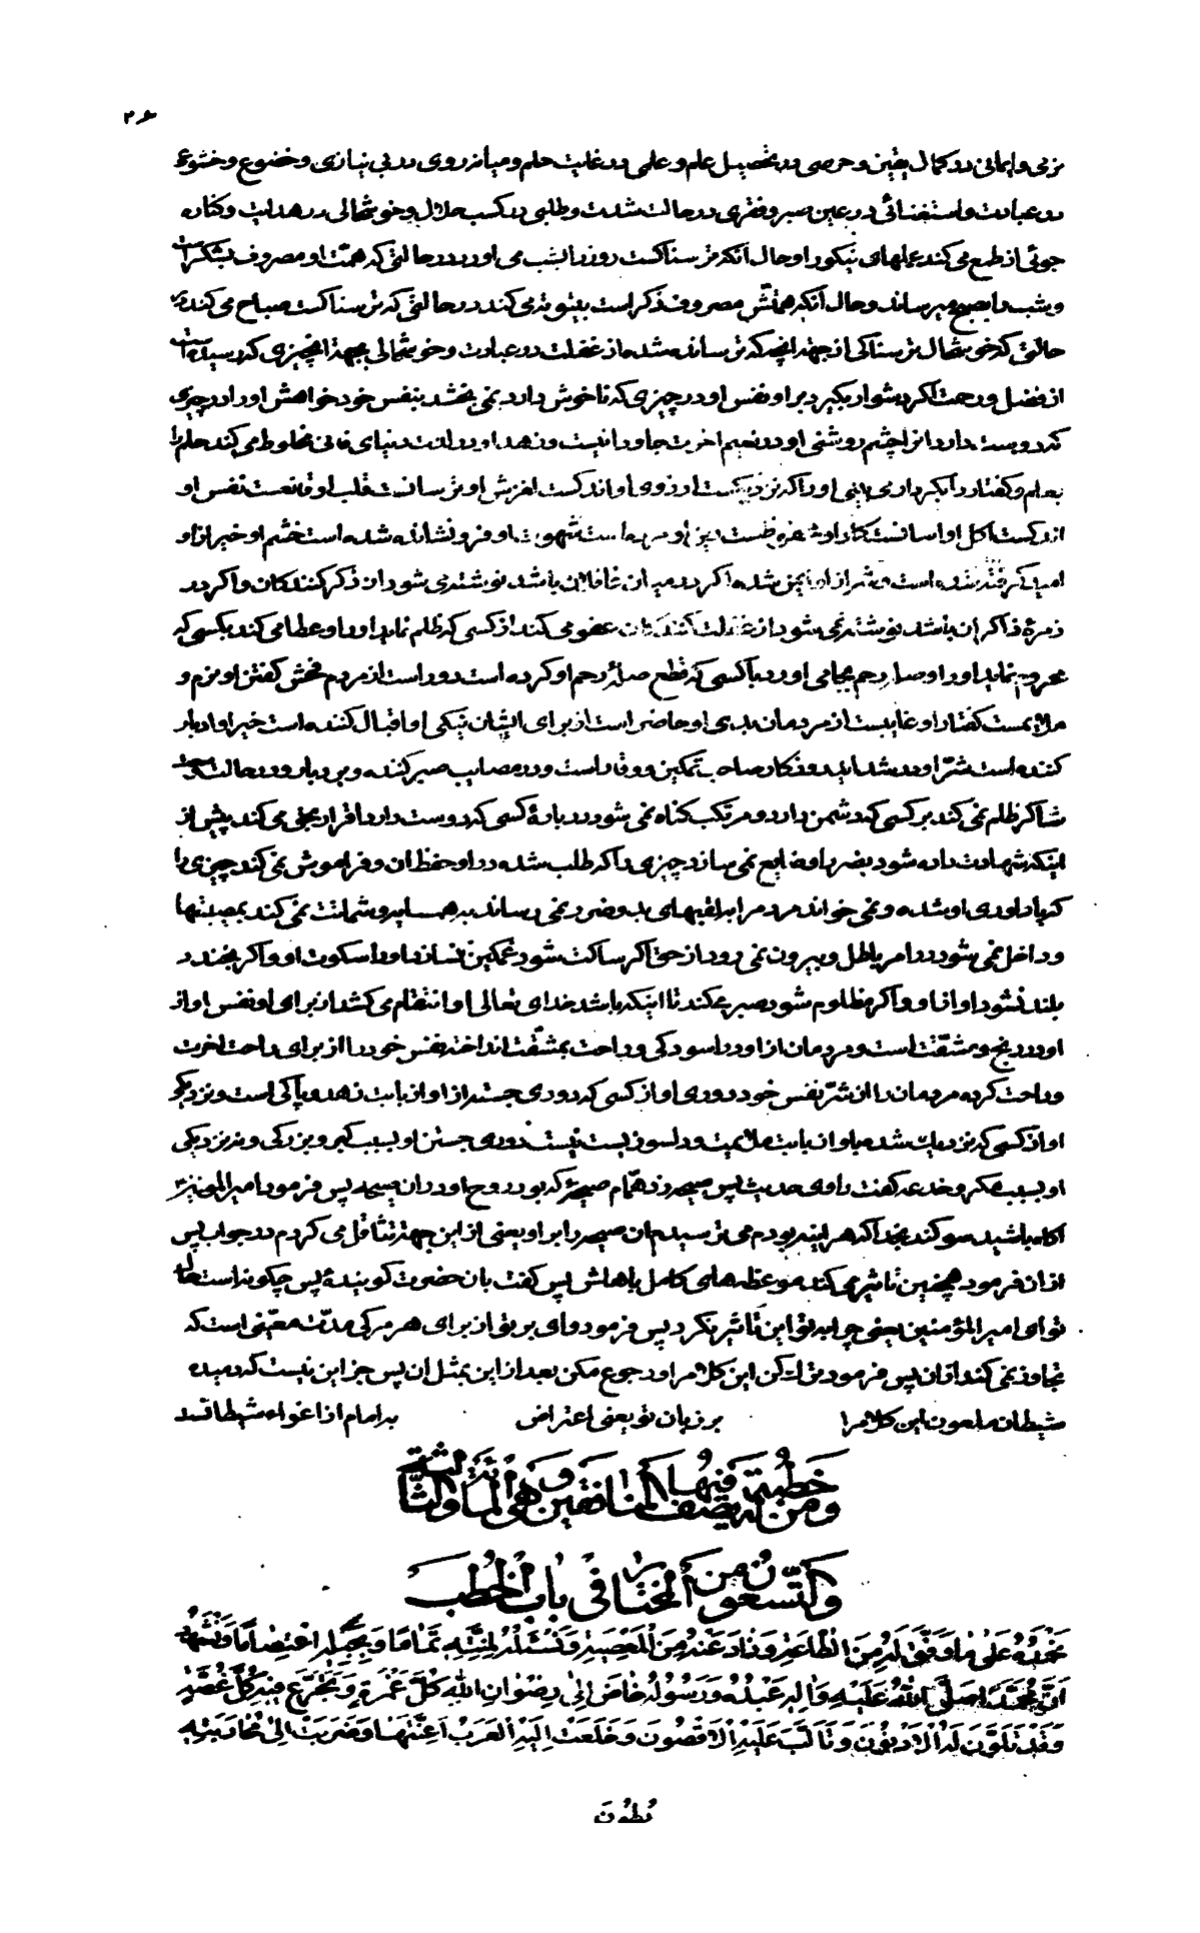 ۲۶
نرمی و ایمانی در کمال یقین و حرصی در تحصیل علم و علمی در غایت حلم و میانه روی در بی نیازی و خضوع و خشوع
در عبادت و استغنائی در عین صبر و فقری در حالت شدت و طلبی در کسب حلال و خوشحالی در هدایت و کناره
جوئی از طمع می کند عملهای نیکو را و حال آنکه ترسناکست روز را بشب می اورد در حالتی که همت او مصروف بشکر است
و شب را بصبح میرساند و حال آنکه همتش مصروف ذکر است بیتوته می کند در حالتی که ترسناکست صباح می کند در
حالتی که خوشحال ترسناکی از جهة انچه که ترسانده شده از غفلت در عبادت و خوشحالی بجهة انچیزی که رسیده است
از فضل و رحمت اگر دشوار بگیرد بر او نفس او در چیزی که ناخوش دارد نمی بخشد بنفس خود خواهش او را در چیزی
که دوست دارد انرا چشم روشنی او در نعیم اخرت جاودانیست و زهد او در لذت دنیای فانی مخلوط می کند حلم را
بعلم و کفتار را بکردار می بینی او را که نزدیکست ارزوی او اندکست لغزش او ترسانست قلب او قانعست نفس او
اندکست اکل او اسانست کار او محفوظست دین او مرده است شهوت او فرونشانده شده است خشم او خیر از او
امید گرفته شده است و شر از او ایمن شده اگر در میان غافلان باشد نوشته می شود از ذکر کنندکان و اگر در
زمرۀ ذاکران باشد نوشته نمی شود از غفلت کنندکان عفو می کند از کسی که ظلم نماید او را و عطا می کند بکسی که
محروم نماید او را و صلۀ رحم بجا می اورد با کسی که قطع صلۀ رحم او کرده است دور است از مردم فحش کفتن او نرم و
ملایمست کفتار او غایبست از مردمان بدی او حاضر است از برای ایشان نیکی او اقبال کننده است خیر او ادبار
کننده است شر او در شداید روزکار صاحب تمکین و وقار است و در مصایب صبر کننده و بردبار و در حالت
شاکر ظلم نمی کند بر کسی که دشمن دارد و مرتکب کناه نمی شود در بارۀ کسی که دوست دارد اقرار بحق می کند پیش از
اینکه شهادت داده شود بضرر او ضایع نمی سازد چیزی را که طلب شده در او حفظ ان و فراموش نمی کند چیزی را
که یاداوری او شده و نمی خواند مردم را بلقبهای بد و ضرر نمی رساند بهمسایه و شماتت نمی کند بمصیبتها
و داخل نمی شود در امر باطل و بیرون نمی رود از حق اگر ساکت شود غمکین نسازد او را سکوت او و اگر بخندد
بلند نشود اواز او و اگر مظلوم شود صبر می کند تا اینکه باشد خدای تعالی او انتقام می کشد از برای او نفس او از
او در رنج و مشقت است و مردمان از او در اسودکی و راحت بمشقت انداخته نفس خود را از برای راحت اخرت
و راحت کرده مردمان را از شر نفس خود دوری او از کسی که دوری جسته از او از بابت زهد و پاکی است و نزدیکی
او از کسی که نزدیک شده باو از بابت ملایمت و دلسوزیست نیست دوری جستن او بسبب کبر و بزرکی و نه نزدیکی
او بسبب مکر و خدعه کفت راوی حدیث پس صیحه زد همام صیحۀ که بود روح او در ان صیحه پس فرمود امیر المؤمنین
اکاه باشید سوکند بخدا که هر اینه بودم می ترسیدم ان صیحه را بر او یعنی از این جهة تثاقل می کردم در جواب پس
از ان فرمود همچنین تاثیر می کند موعظه های کامل باهلش پس کفت بان حضرت کویندۀ پس چکونه است حال
تو ای امیر المؤمنین یعنی چرا بتو این تاثیر نکرد پس فرمود وای بر تو از برای هر مرکی مدت معینی است که
تجاوز نمی کند از ان پس فرمود ترک کن این کلام را و رجوع مکن بعد از این بمثل ان پس جز این نیست که دمیده
شیطان ملعون این کلام را بر زبان تو یعنی اعتراض به امام از اغواء شیطانست
وَمن خطبة له یصف فیها المنافقین وَهی المائة والثّالثة
وَالتّسعون من المختار فی باب الخطب
نَحْمَدُهُ عَلىٰ مٰا وَفَّقَ لَهُ مِنَ الطّٰاعَةِ وَذٰادَ عَنْهُ مِنَ الْمَعْصِیَةِ وَنَسْئَلُهُ لِمِنَّتِهِ تَمٰامًا وَبِحَبْلِهِ اعْتِصٰامًا وَنَشْهَدُ
اَنَّ مُحَمَّدًا صَلَّى اللّٰهُ عَلَیْهِ وَاٰلِهِ عَبْدُهُ وَرَسُولُهُ خٰاضَ اِلىٰ رِضْوٰانِ اللّٰهِ كُلَّ غَمْرَةٍ وَتَجَرَّعَ فیهِ كُلَّ غُصَّةٍ
وَقَدْ تَلَوَّنَ لَهُ الْاَدْنَوْنَ وَتَاَلَّبَ عَلَیْهِ الْاَقْصَوْنَ وَخَلَعَتْ اِلَیْهِ الْعَرَبُ اَعِنَّتَهٰا وَضَرَبَتْ اِلىٰ مُحٰارَبَتِهِ
بُطُونَ